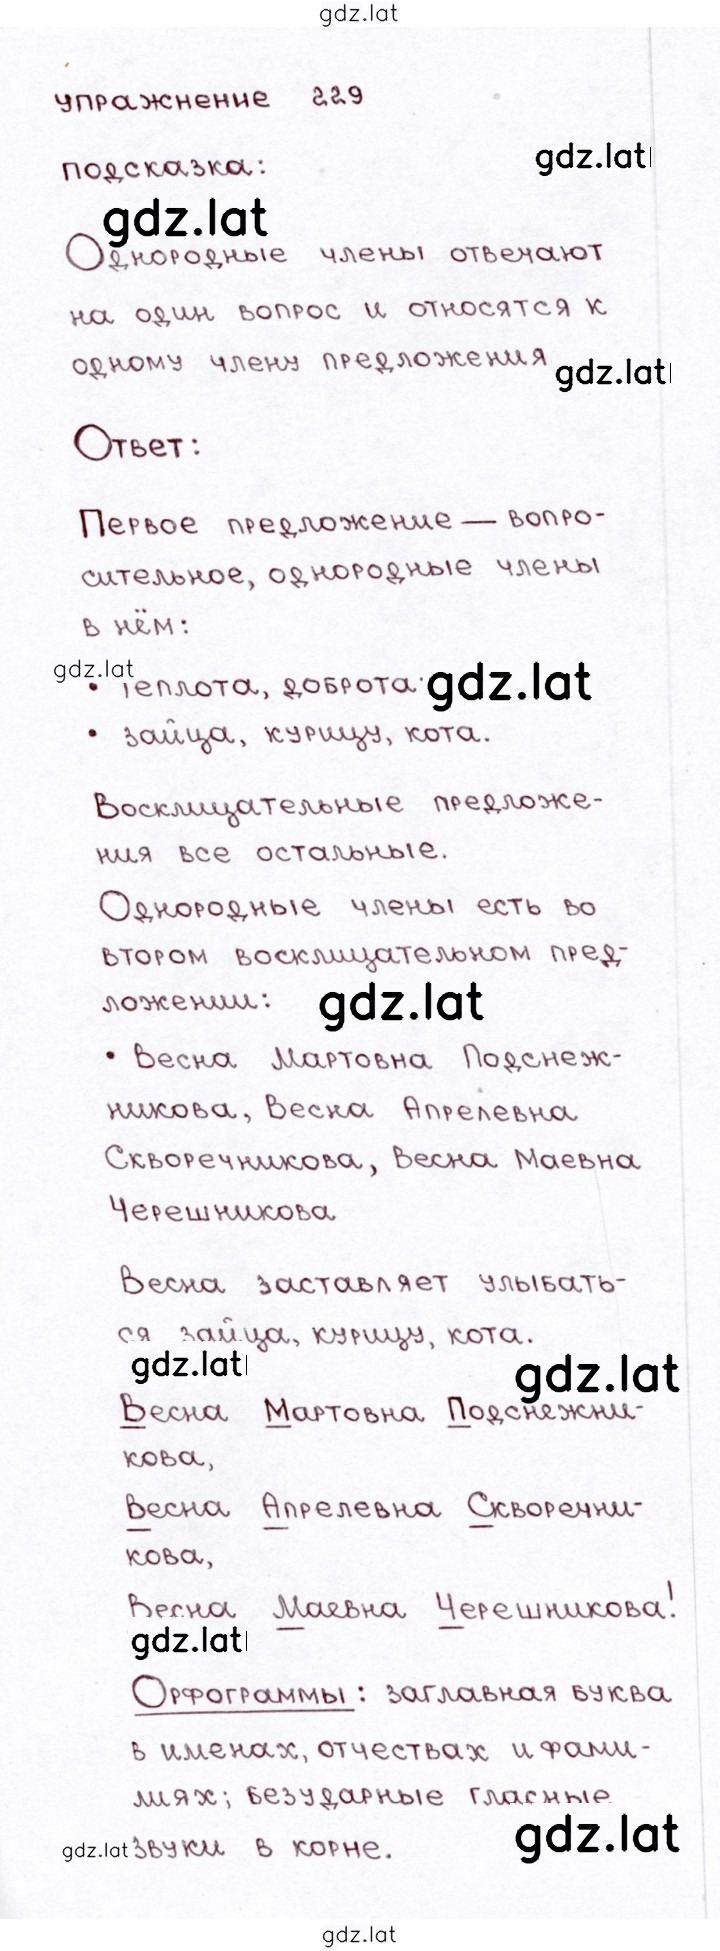 gdz.lat
упражнение 229
подсказка:
gdz.lat
gdz.lat
Однородные члены отвечают
на один вопрос и относятся к
одному члену предложения
gdz.lat
Ответ:
Первое предложение — вопро-
сительное, однородные члены
в нём:
gdz.lat
• теплота, доброта
gdz.lat
• зайца, курицу, кота.
Восклицательные предложе-
ния все остальные.
Однородные члены есть во
втором восклицательном пред-
ложении:
gdz.lat
• Весна Мартовна Подснеж-
никова, Весна Апрелевна
Скворечникова, Весна Маевна
Черешникова
Весна заставляет улыбать-
ся зайца, курицу, кота.
gdz.lat
gdz.lat
Весна Мартовна Подснежни-
кова,
Весна Апрелевна Скворечни-
кова,
Весна Маевна Черешникова!
gdz.lat
Орфограммы: заглавная буква
в именах, отчествах и фами-
лиях; безударные гласные
gdz.lat
звуки в корне.
gdz.lat
gdz.lat